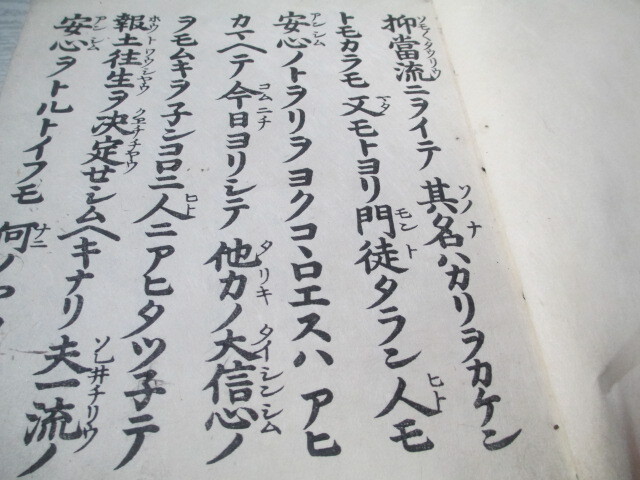 抑當流ニヲイテ其名ハカリヲカケン
トモカラモ又モトヨリ門徒タラン人モ
安心ノトヲリヲヨクコヽロエスハアヒ
カマヘテ今日ヨリシテ他力ノ大信心ノ
ヲモムキヲ子ンコロニ人ニアヒタツ子テ
報土往生ヲ決定セシムヘキナリ夫一流ノ
安心ヲトルトイフモ何ノ